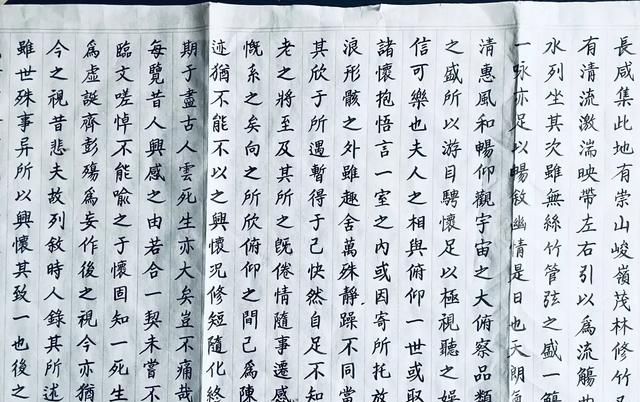 長咸集此地有崇山峻嶺茂林修竹又
有清流激湍映帶左右引以爲流觴曲
水列坐其次雖無絲竹管弦之盛一觴
一咏亦足以暢敘幽情是日也天朗氣
清惠風和暢仰觀宇宙之大俯察品類
之盛所以游目騁懷足以極視聽之娛
信可樂也夫人之相與俯仰一世或取
諸懷抱悟言一室之內或因寄所托放
浪形骸之外雖趣舍萬殊靜躁不同當
其欣于所遇暫得于己快然自足不知
老之將至及其所之既倦情隨事遷感
慨系之矣向之所欣俯仰之間已爲陳
迹猶不能不以之興懷況修短隨化終
期于盡古人雲死生亦大矣豈不痛哉
每覽昔人興感之由若合一契未嘗不
臨文嗟悼不能喻之于懷固知一死生
爲虛誕齊彭殤爲妄作後之視今亦猶
今之視昔悲夫故列敘時人錄其所述
雖世殊事异所以興懷其致一也後之